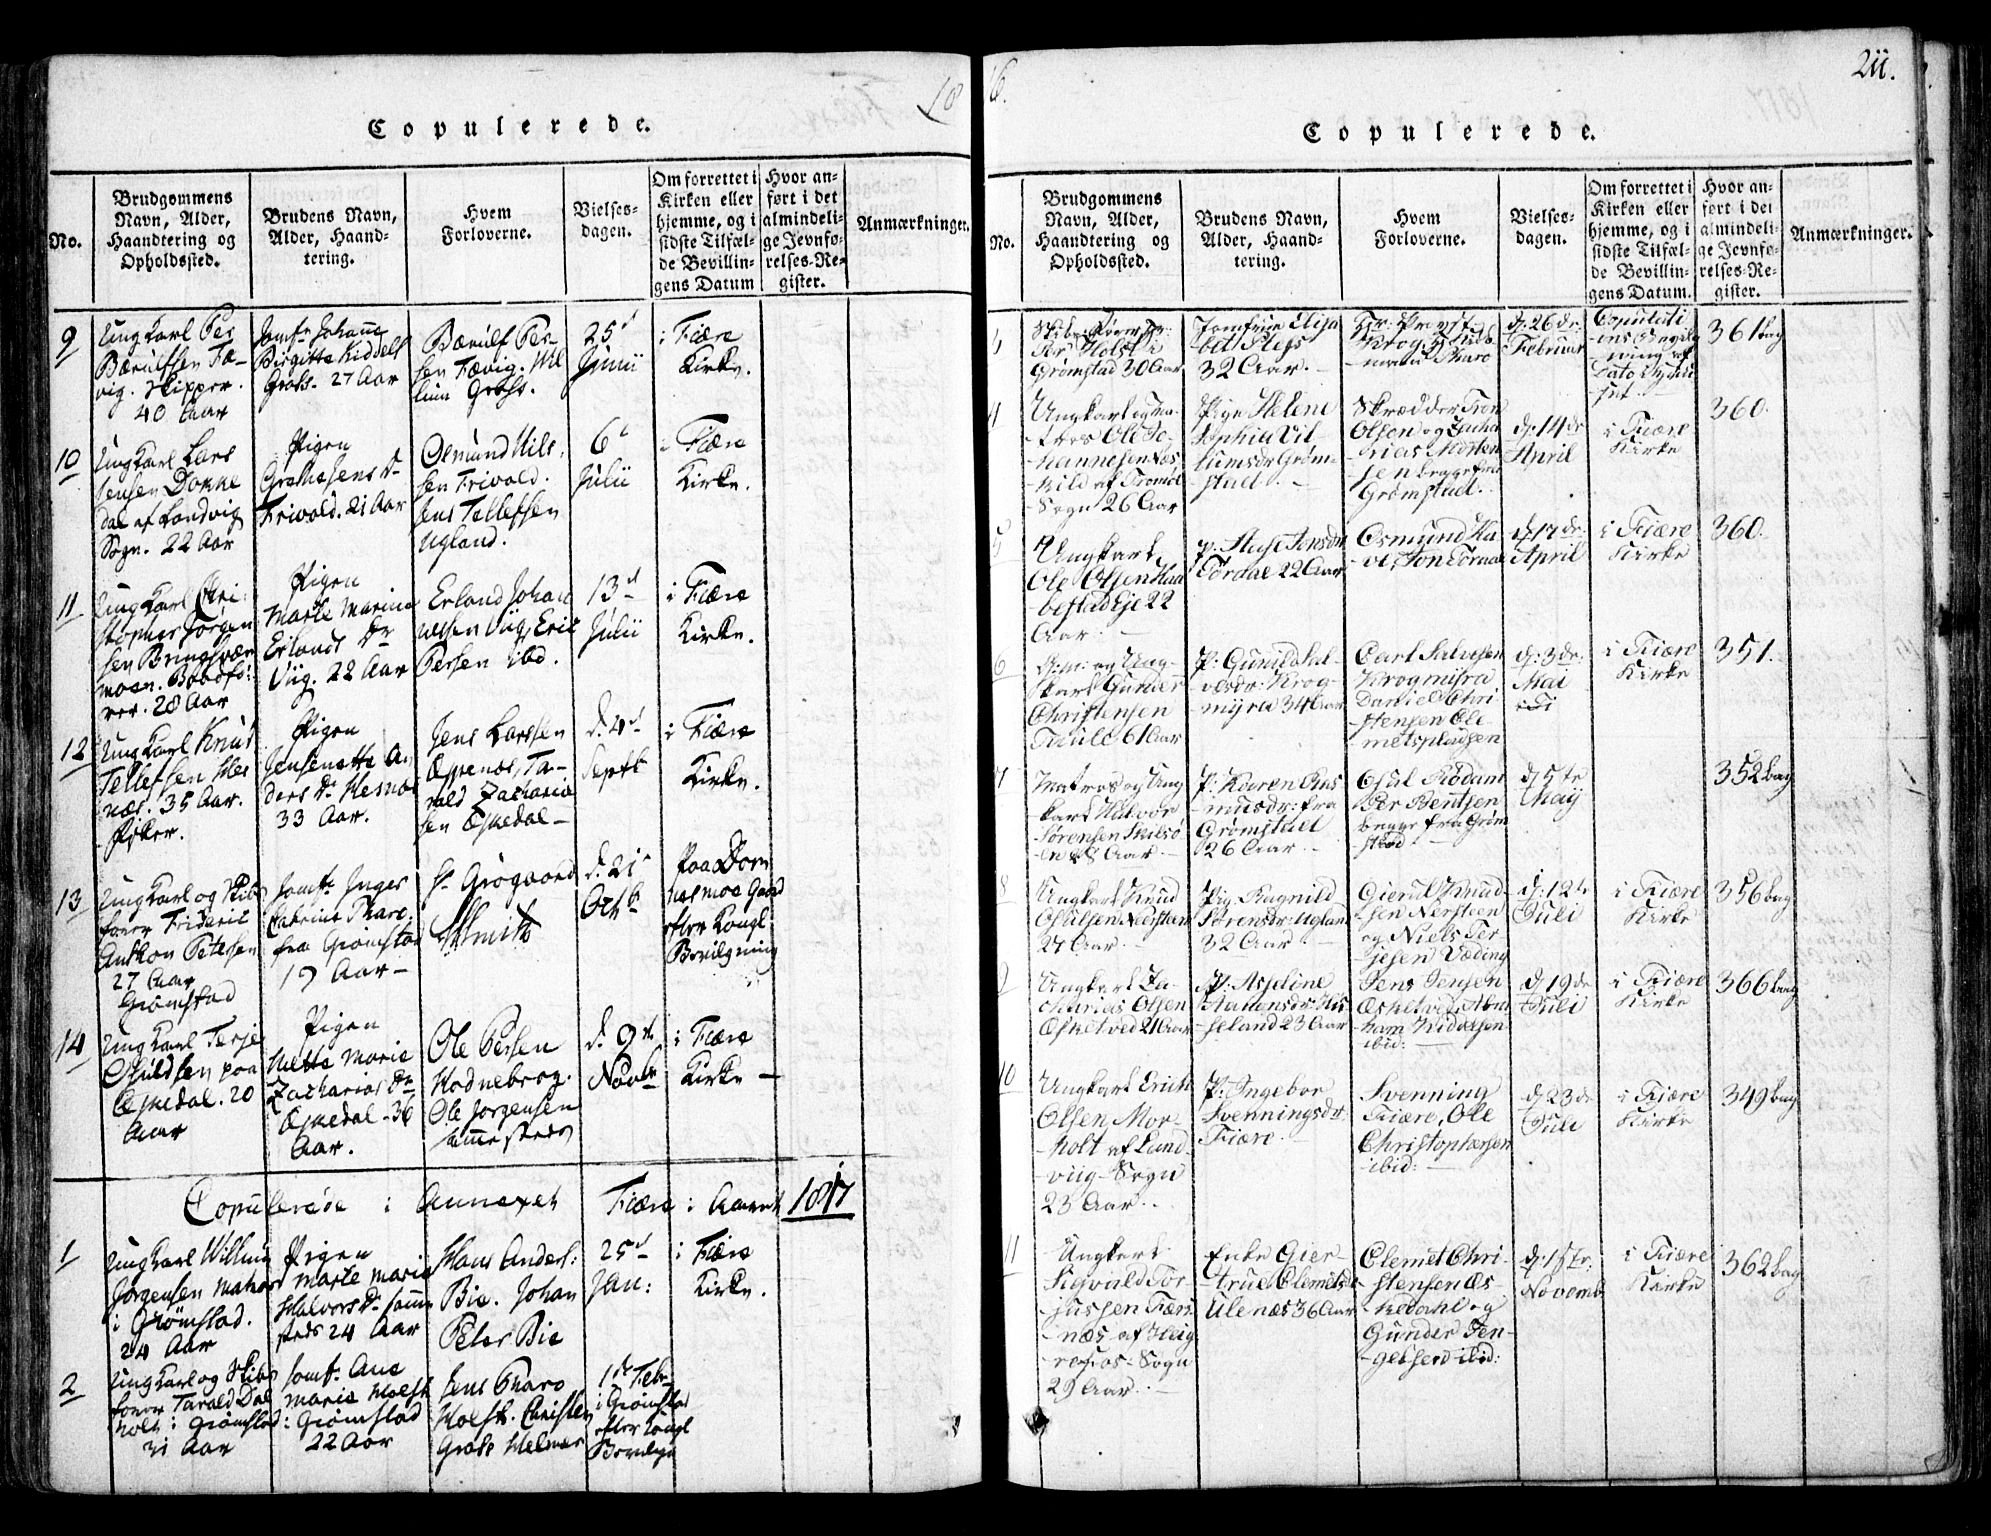 18
Copulerede.
No.
Brudgommens Navn, Alder, Haandtering og Opholdssted.
Brudens Navn, Alder, Haandtering.
Hvem Forloverne.
Vielses-dagen.
Om forrettet i Kirken eller hjemme, og i sidste Tilfælde Bevillingens Datum
Hvor anført i det almindelige Jevnførelses-Register.
Anmærkninger.
9
Ungkarl Per
Bærulfsen Fæ-
vig. Skipper.
40 Aar
Jomfr Johanne
Birgitte Kiddels
Grahs. 27 Aar
Bærulf Per-
sen Fævig. Wil
lum Grahs.
25d
Junii
i Fiære
Kirke.
10
Ungkarl Lars
Jensen Domme
dal af Landvig
Sogn. 22 Aar
Pigen
Grethe Jens Dr
Frivold. 21 Aar
Osmund Nils
sen Frivold.
Jens Tellefsen
Ugland.
6d
Julii
i Fiære
Kirke.
11
Ungkarl Chri-
stopher Jørgen
sen Bringsvær
moen. Baadfø-
rer. 28 Aar
Pigen
Marte Marina
Erlands Dr
Viig. 22 Aar
Erland Johan
nessen Viig, Eric
Persen ibd.
13d
Julii
i Fiære
Kirke.
12
Ungkarl Knud
Tellefsen Hes
næs. 35 Aar.
Fisker.
Pigen
Jensenette An
ders Dr Hesnæs
33 Aar.
Jens Larssen
Espenæs, Ta-
rald Zacharia
sen Eskedal -
d. 4d
Septb
i Fiære
Kirke.
13
Ungkarl og Skibs
fører Frideric
Anthon Petersen
27 Aar
Grømstad
Jomfr Inger
Catrine Pharo
fra Grømstad
19 Aar -
Hr Grøgaard
Schmith
d. 21
Octb
Paa Dom
mesmoe Gaard
efter Kongl
Bevilgning
14
Ungkarl Terje
Osuldsen paa
Eskedal. 20
Aar
Pigen
Mette Marie
Zacharias Dr
Eskedal - 36
Aar.
Ole Persen
Hodnebrog.
Ole Jørgensen
sammesteds
d. 9de
Novbr
i Fiære
Kirke -
Copulerede i Annexet Fiære i Aaret 1817
1
Ungkarl Willum
Jørgensen Matros
i Grømstad.
24 Aar
Pigen
Marte Marie
Halvors Dr samme
steds 24 Aar
Hans Anders:
Bie. Johan
Peter Bie
25d
Jan:
i Fiære
Kirke.
2
Ungkarl og Skibs
fører Tarald Dal
holt i Grømstad
31 Aar
Jomfr Ane
Marie Holst
i Grømstad
22 Aar
Jens Pharo
Holst. Christen
Grahs Helmer
1ste Febr
i Grømstad
efter Kongl
Bevilgn
6.
211.
Copulerede.
No.
Brudgommens Navn, Alder, Haandtering og Opholdssted.
Brudens Navn, Alder, Haandtering.
Hvem Forloverne.
Vielses-dagen.
Om forrettet i Kirken eller hjemme, og i sidste Tilfælde Bevillingens Datum.
Hvor anført i det almindelige Jevnførelses-Register.
Anmærkninger.
3
Holst i
Grømstad 30 Aar
Jomfrue Elisa
bet Stejs
32 Aar.
Hr: Provst
Krog
Pharo
d: 26 de
Februar
361 bag
4
Ungkarl og Ma-
tros Ole Jo-
hannesen Nos
kild af Tromøe
Sogn 26 Aar
Pige Helene
Sophia Vil-
lumsdr Grøm-
stad. -
Skrædder Tron
Olsen og Zacha
rias Morten
sen begge fra
Grømstad.
d: 14 de
April
i Fiære
Kirke
360.
5
Ungkarl
Ole Olsen Kaa
bestad Eje 22
Aar. -
P. Else Jonsdr
Tordal 22 Aar
Osmund Ka
le, Jon Tordal
d: 17 de
April
i Fiære
Kirke
360.
6
Ung-
karl Gunder
Christensen
61 Aar
P: Gunild Sal-
vesdr: Krog-
myra 34 Aar
Carl Salvesen
Krogmyra
Daniel Chri
stensen Ole
metspladsen
d: 3 de
Mai
i Fiære
Kirke
351.
7
Matros og Ung
karl Halvor
Sørensen Skilsø
en 28 Aar -
P: Karen Ras
musdr: fra
Grømstad
26 Aar. -
Osul Rødam
Per Bentsen
begge fra Grøm
stad
d: 5 te
May
352 bag
8
Ungkarl Knud
Osulsen Nersteen
27 Aar. -
Pig. Ragnild
Sørensdr: Ugland
32 Aar. -
Gierul Knud-
sen Nersteen
og Niels Ter
jesen Væding
d: 12 te
Juli
i Fiære
Kirke
356 bag
9
Ungkarl Za-
charias Olsen
Eskelved 21 Aar
P. Aspeline
Aanensdr: His
seland 23 Aar
Jens Jensen
Eskelved, Abra
ham Kiddelsen
ibid: -
d: 19 de
Juli
i Fiære
Kirke
366 bag
10
Ungkarl Erich
Olsen Mor-
holt af Land-
viig - Sogn
23 Aar. -
P: Ingebor
Svenningsdr:
Fiære. -
Svenning
Fiære, Ole
Christophersen
ibid: -
d: 23 de
Juli
i Fiære
Kirke
349 bag
11
Ungkarl
Sigvald Tor
jussen Færs
næs af Heig
revas: Sogn
29 Aar. -
Enke Gier-
true Clemetsdr
Ulenæs 36 Aar
Clemet Chri-
stensen Es-
kedahl og
Gunder Ten-
gelsen ibid:
d: 1ste
Novemb
i Fiære
Kirke
362 bag